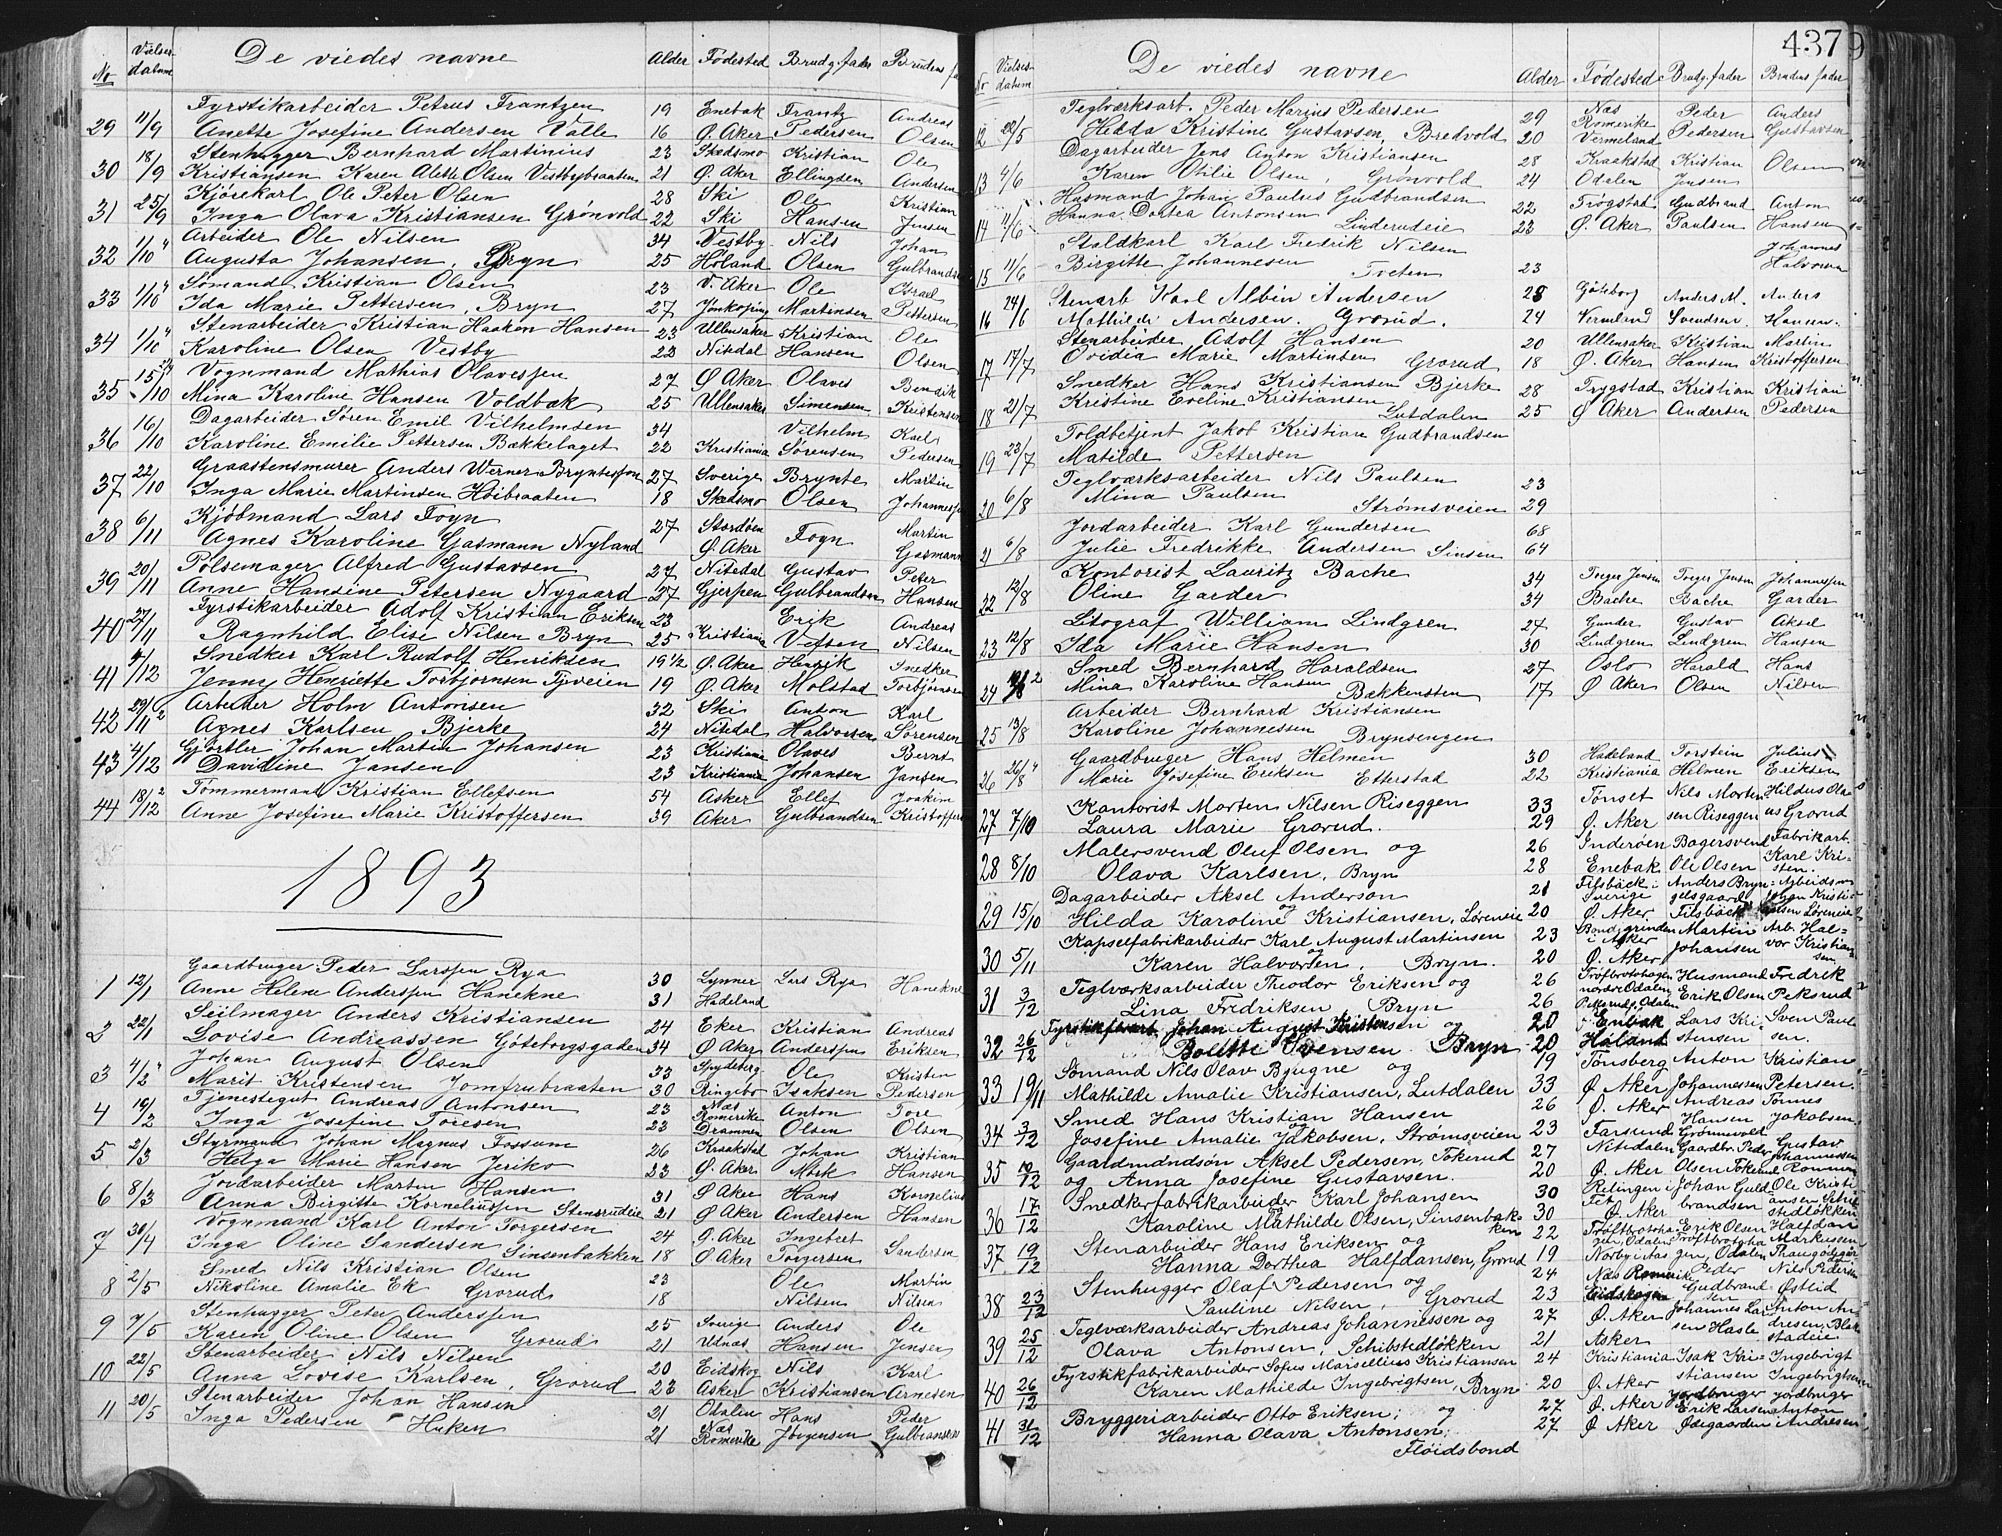 De viedes navne
No Vielses-datum Alder Fødested Brudg. fader Brudens fa
Fyrstikarbeider Petrus Frantzen 19 Enebak Frantz Andreas
29 11/9 Anette Josefine Andersen Valle 16 Ø. Aker Pedersen Olsen
Stenhugger Bernhard Martinius 23 Skedsmo Kristian Ole
30 18/9 Kristiansen Karen Alette Olsen Vestbybraaten 21 Ø. Aker Ellingsen Andersen
Kjørekarl Ole Peter Olsen 28 Ski Ole Kristian
31 25/9 Inga Olava Kristiansen Grønvold 22 Ski Hansen Jensen
Arbeider Ole Nilsen 34 Vestby Nils Johan
32 1/10 Augusta Johansen, Bryn 25 Høland Olsen Gulbrands
Sømand Kristian Olsen 23 V. Aker Ole Israel
33 1/10 Ida Marie Pettersen, Bryn 27 Jönkoping Martinsen Pettersen
Stenarbeider Kristian Haakon Hansen 23 Ullensaker Kristian Ole
34 1/10 Karoline Olsen Vestby 22 Nitedal Hansen Olsen
Vognmand Mathias Olavessen 27 Ø Aker Olaves Bendik
35 15/10 Mina Karoline Hansen Voldbæk 25 Ullensaker Simensen Kristensen
Dagarbeider Søren Emil Vilhelmsen 34 Vilhelm Karl
36 16/10 Karoline Emilie Pettersen Bækkelaget 22 Kristiania Sørensen Pedersen
Graastensmurer Anders Werner Bryntesson 27 Sverige Brynte Martin
37 22/10 Inga Marie Martinsen Høibraaten 18 Skedsmo Olsen Johannesse
Kjøbmand Lars Foyn 27 Stordøen Foyn Martin
38 6/11 Agnes Karoline Gasmann Nyland Ø. Aker Gasmann
Pølsemager Alfred Gustavsen 27 Nitedal Gustav Peter
39 20/11 Anne Hansine Petersen Nygaard 27 Gjerpen Gulbrandsen Hansen
Fyrstikarbeider Adolf Kristian Eriksen 23 Erik Andreas
40 27/11 Ragnhild Elise Nilsen Bryn 25 Kristiania Vefsen Nilsen
Snedker Karl Rudolf Henriksen 19½ Ø. Aker Henrik Snedker
41 4/12 Jenny Henriette Torbjørnsen Tyveien 19 Ø. Aker Molstad Torbjørnsen
Arbeider Holm Antonsen 32 Ski Anton Karl
42 29/12 Agnes Karlsen Bjerke 24 Nitedal Halvorsen Sørensen
Gjørtler Johan Martin Johansen 23 Kristiania Olaves Bernt
43 4/12 Davidine Jansen 23 Kristiania Johansen Jansen
Tømmermand Kristian Ellefsen 54 Asker Ellef Joakim
44 18/12 Anne Josefine Marie Kristoffersen 39 Aker Gulbrandsen Kristoffers
1893
Gaardbruger Peder Larssen Rya 30 Lynner Lars Rya Hanekne
1 12/1 Anne Helene Anderssen Hanekne 31 Hadeland
Seilmager Anders Kristiansen 24 Eker Kristian Andreas
2 22/1 Lovise Andreassen Göteborgsgaden 34 Ø Aker Anderssen Eriksen
Johan August Olsen 33 Spydeberg Ole Kristen
3 4/2 Marit Kristensen Jomfrubraaten 30 Ringebo Isaksen Pedersen
Tjenestegut Andreas Antonsen 23 Næs Romerike Anton Tore
4 19/2 Inga Josefine Toresen 23 Drammen Olsen Olsen
Styrmann Johan Magnus Fossum 26 Kraakstad Johan Kristian
5 2/3 Helga Marie Hansen Jeriko 23 Ø. Aker Mørk Hansen
Jordarbeider Martin Hansen 31 Ø Aker Hans Kornelius
6 8/3 Anna Birgitte Korneliussen Stensrudeie 21 Ø Aker Andersen Hansen
Vognmand Karl Anton Torgersen 24 Ø. Aker Ingebret
7 30/4 Inga Oline Sandersen Sinsenbakken 18 Ø Aker Torgersen Sandersen
Smed Nils Kristian Olsen 23 Ole Martin
8 2/5 Nikoline Amalie Ek Grorud 18 Nilsen Nilsen
Stenhugger Peter Anderssen 25 Sverige Anders Ole
9 7/5 Karen Oline Olsen Grorud 21 Udnæs Hansen Jensen
Stenarbeider Nils Nilsen 20 Eidskog Nils Karl
10 22/5 Anna Lovise Karlsen, Grorud 23 Asker Kristiansen Arnesen
Stenarbeider Johan Hansen 21 Odalen Hans Peder
11 20/5 Inga Pedersen Huken 21 Næs Romerike Jørgensen Gulbransen
4379
De viedes navne
No Vielses-datum Alder Fødested Brudg. fader Brudens fader
Teglværksarb. Peder Marius Pedersen 29 Næs Romerike Peder Anders
12 20/5 Hedda Kristine Gustavsen, Bredvold 20 Vermeland Pedersen Gustavsen
Dagarbeider Jens Anton Kristiansen 28 Kraakstad Kristian Olsen
13 4/6 Karen Otilie Olsen, Grønvold 24 Odalen Jensen
Husmand Johan Paulus Gudbrandsen 22 Trøgstad Gudbrand Anton
14 11/6 Hanna Dortea Antonsen Linderudeie 23 Ø. Aker Paulsen Hansen
Staldkarl Karl Fredrik Nilsen Johannes
15 11/6 Birgitte Johannesen Tveten 23 Halvorsen
Stenarb Karl Albin Andersen 28 Göteborg Anders M. Anders
16 24/6 Mathilde Andersen. Grorud. 24 Vermland Svendsen. Hansen.
Stenarbeider Adolf Hansen 20 Ullensaker Kristian Martin
17 17/7 Ovidia Marie Martinsen Grorud 18 Ø. Aker Hansen Kristoffersen
Snedker Hans Kristiansen Bjerke 28 Trygstad Kristian Kristian
18 21/7 Kristine Eveline Kristiansen Lutdalen 25 Ø Aker Andersen Pedersen
Toldbetjent Jakob Kristian Gudbrandsen
19 23/7 Matilde Pettersen
Teglværksarbeider Nils Paulsen 23
20 6/8 Mina Paulsen Strømsveien 29
Jordarbeider Karl Gundersen 68
21 6/8 Julie Fredrikke Andersen Sinsen 64
Kontorist Lauritz Bache 34 Inger Jensen Inger Jensen Johannessen
22 12/8 Oline Garder 34 Bache Bache Garder
Litograf William Lindgren 27 Gunder Gustav Aksel
23 12/8 Ida Marie Hansen 30 Lindgren Lindgren Hansen
Smed Bernhard Haraldsen 27 Oslo Harald Hans
24 Mina Karoline Hansen Bækkensten 17 Ø Aker Olsen Nilsen
Arbeider Bernhard Kristiansen
25 13/8 Karoline Johannessen Brynsengen
Gaardbruger Hans Helmen 30 Hadeland Torstein Julius
26 26/8 Marie Josefine Eriksen Etterstad 22 Kristiania Helmen Eriksen
Kantorist Morten Nilsen Riseggen 33 Tönset Nils Morten Hildus Ola
27 7/10 Laura Marie Grorud. 29 Ø. Aker sen Riseggen us Grorud
Malersvend Oluf Olsen og 26 Inderøen Bagersvend Fabrikarb.
28 8/10 Olava Karlsen, Bryn 28 Enebak Ole Olsen Karl Kristen.
Dagarbeider Aksel Anderson 21 Filsbäck i Sverige Anders Bryn= Arbeidsm
29 15/10 og Hilda Karoline Kristiansen, Løreneie 20 Ø. Aker Filsbäck
Kapselfabrikarbeider Karl August Martinsen 23 Bondegrinden i Aker Martin Arb. Hal=
30 5/11 og Karen Halvorsen, Bryn. 20 Ø. Aker Johansen vor Kristiansen
Teglværksarbeider Theodor Eriksen og 26 nordre Odalen Husmand Fredrik
31 3/12 Lina Fredriksen Bryn 26 Odalen Erik Olsen Peksrud
Johan August Kristensen og 20 Enebak Lars Kri- Sven Paul
32 26/12 Bolette Svensen Bryn 20 Høland stensen sen.
Sømand Nils Olav Bjugne og 19 Tönsberg Anton Kristian
33 19/11 Mathilde Amalie Kristiansen, Lutdalen 33 Ø Aker Johannessen Petersen.
Smed Hans Kristian Hansen 26 Ø. Aker Andreas Tønnes
34 3/12 og Josefine Amalie Jakobsen, Strømsveien 23 Farsund Hansen Grönnevold Jakobsen
Gaardmandsøn Aksel Pedersen, Tokerud 27 Nitedalen Gaardbr. Peder Gustav
35 10/12 og Anna Josefine Gustavsen. 20 Ø. Aker Olsen Tokerud Johannessen Rommen
Snedkerfabrikarbeider Karl Johansen 30 Johan Guld Ole Kristi
36 17/12 og Karoline Mathilde Olsen, Sinsenbakken 30 Ø. Aker brandsen
Stenarbeider Hans Eriksen og 22 Erik Olsen Halfdan
37 19/12 Hanna Dorthea Halfdansen, Grorud 19 Odalen Markussen
Stenhugger Olaf Pedersen og 24 Næs Romerike Peder Nils Pedersen
38 23/12 Pauline Nilsen, Grorud 23 Eidskogen Gudbrandsen Østlid
Teglværksarbeider Andreas Johannessen og 27 Ø. Aker Johannes Lar- Anton An=
39 25/12 Olava Antonsen, Schibstedløkken 21 Asker sen Hasle dresen, Blakstadeie
Fyrstikfabrikarbeider Sofus Marsellius Kristiansen 24 Kristiania Isak Kri= Ingebrigt
40 26/12 Karen Mathilde Ingebrigtsen, Bryn 20 Ø. Aker stiansen Ingebrigtsen
Bryggeriarbeider Otto Eriksen; og 27 Ø. Aker jordbruger Erik Larsen jordbruger Anton
41 31/12 Hanna Olava Antonsen; 27 Ø Aker Ødegaarden Andresen
Fløidsbond